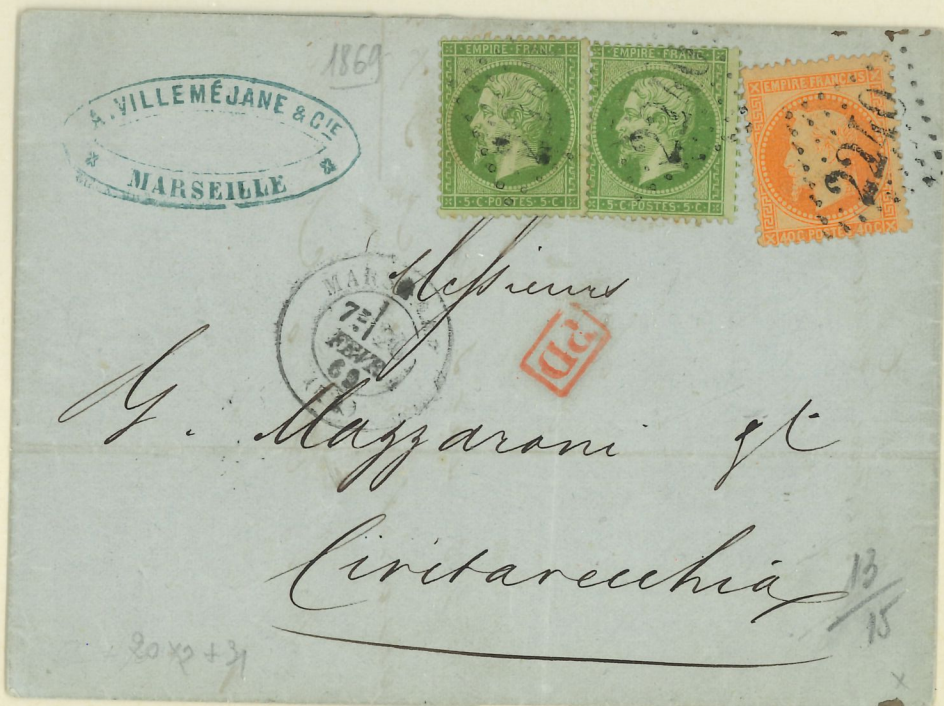 1869
A. VILLEMÉJANE & CIE
MARSEILLE
EMPIRE FRANC
5 • C • POSTES • 5 • C
EMPIRE FRANC
5 • C • POSTES • 5 • C
EMPIRE FRANÇAIS
40C POSTES 40C
2240
Messieurs
MARSEILLE
7E
FEVR
69
PD
G. Mazzaroni gt
Civitavecchia
13
15
20 x 2 + 31
x